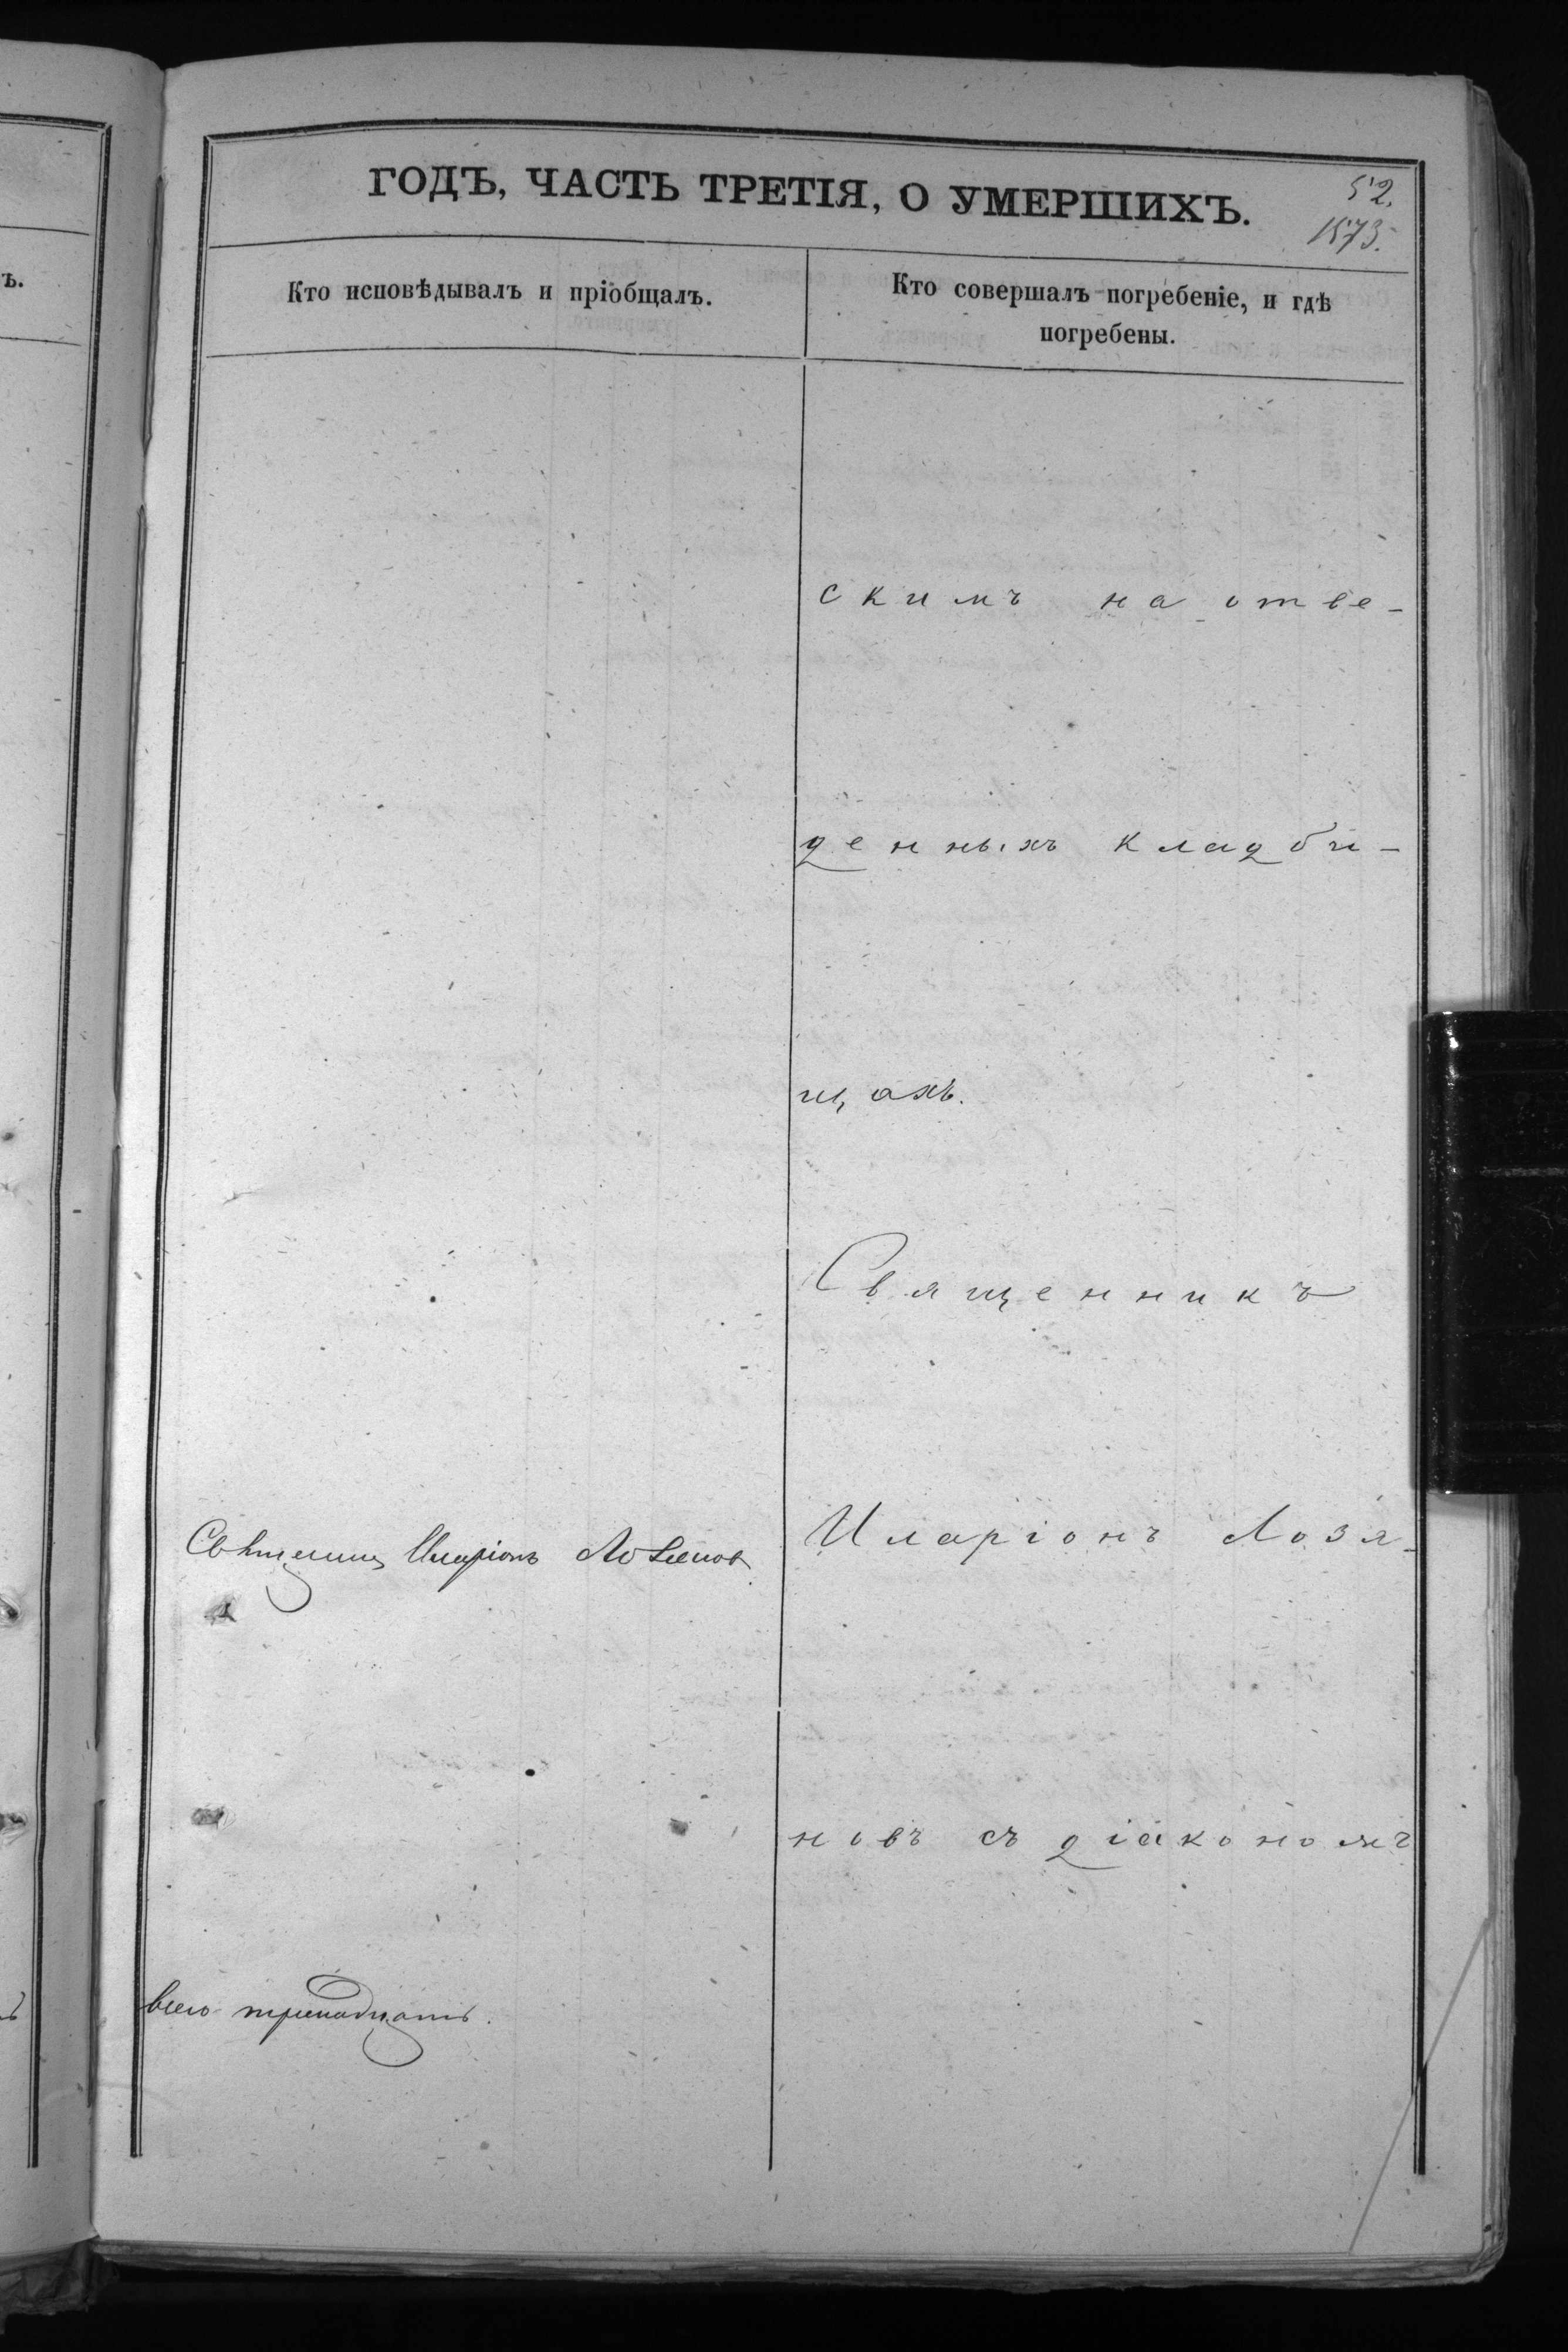 ГОДЪ, ЧАСТЬ ТРЕТІЯ, О УМЕРШИХЪ.
52.
1573.
ъ.
Кто исповѣдывалъ и пріобщалъ.
Кто совершалъ погребеніе, и гдѣ
погребены.
скимъ на отве-
денныхъ кладби-
щахъ.
Священникъ
Священникъ Иларіонъ Лозянов
Иларіонъ Лозя-
новъ съ діакономъ
всего тринадцать.